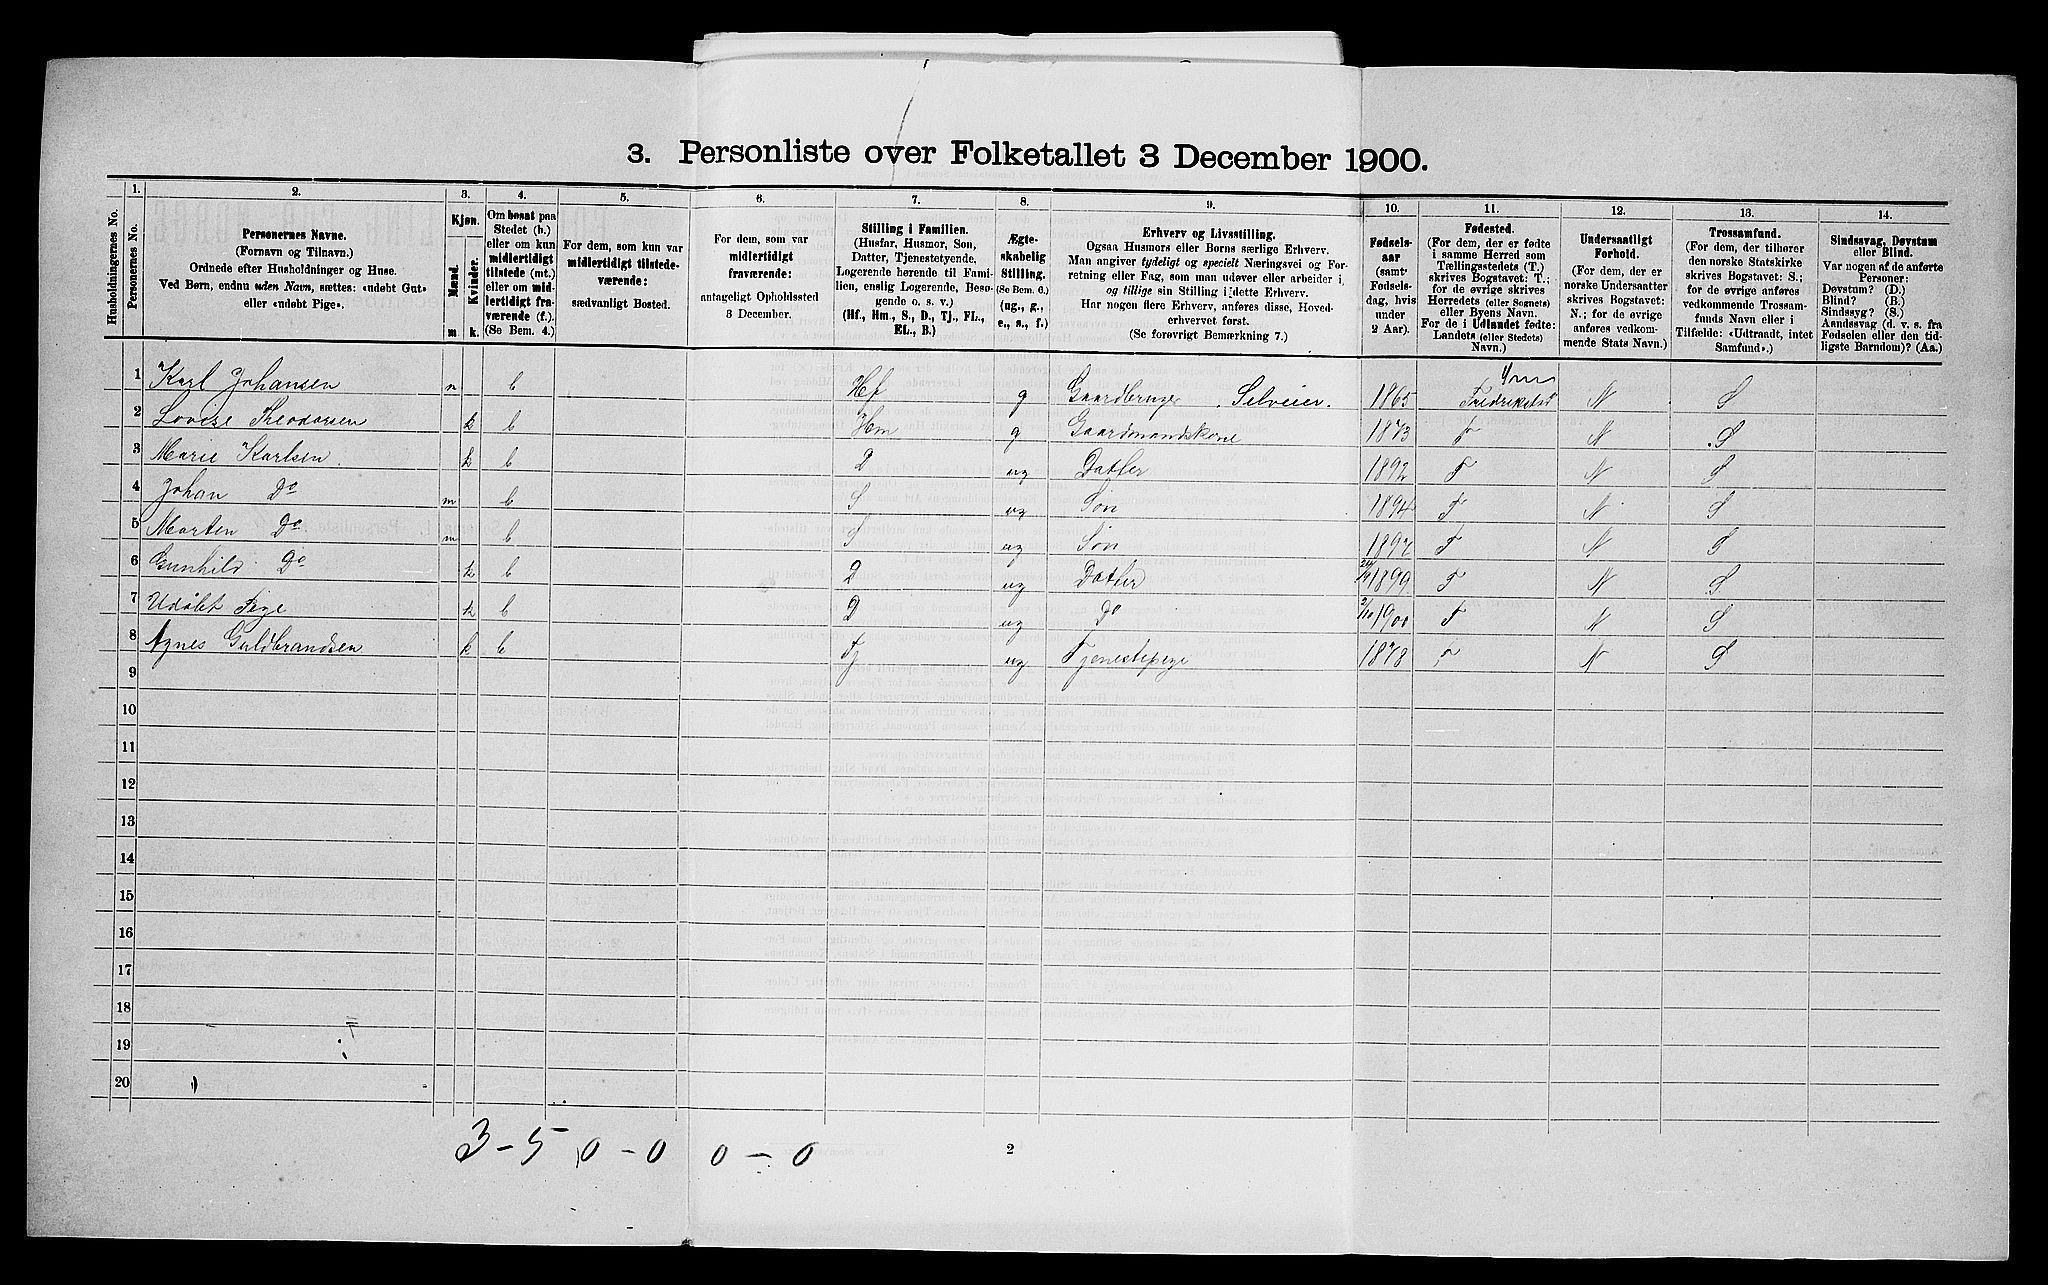 3. Personliste over Folketallet 3 December 1900.
Husholdningernes No.
1.
Personernes No.
2.
Personernes Navne.
(Fornavn og Tilnavn.)
Ordnede efter Husholdninger og Huse.
Ved Børn, endnu uden Navn, sættes: «udøbt Gut»
eller «udøbt Pige».
3.
Kjøn.
Mænd.
Kvinder.
m. k.
4.
Om bosat paa
Stedet (b.)
eller om kun
midlertidigt
tilstede (mt.)
eller om mid-
lertidigt fra-
værende (f.).
(Se Bem. 4.)
5.
For dem, som kun var
midlertidigt tilstede-
værende:
sædvanligt Bosted.
6.
For dem, som var
midlertidigt
fraværende:
antageligt Opholdssted
3 December.
7.
Stilling i Familien.
(Husfar, Husmor, Søn,
Datter, Tjenestetyende,
Logerende hørende til Fami-
lien, enslig Logerende, Besø-
gende o. s. v.)
(Hf., Hm., S., D., Tj., FL.,
EL., B.)
8.
Ægte-
skabelig
Stilling.
(Se Bem. 6.)
(ug., g.,
e., s., f.)
9.
Erhverv og Livsstilling.
Ogsaa Husmors eller Børns særlige Erhverv.
Man angiver tydeligt og specielt Næringsvei og For-
retning eller Fag, som man udøver eller arbeider i,
og tillige sin Stilling i dette Erhverv.
Har nogen flere Erhverv, anføres disse, Hoved-
erhvervet først.
(Se forøvrigt Bemærkning 7.)
10.
Fødsels-
aar
(samt
Fødsels-
dag, hvis
under
2 Aar).
11.
Fødested.
(For dem, der er fødte
i samme Herred som
Tællingsstedets (T.)
skrives Bogstavet: T.;
for de øvrige skrives
Herredets (eller Sognets)
eller Byens Navn.
For de i Udlandet fødte:
Landets (eller Stedets)
Navn.)
12.
Undersaatligt
Forhold.
(For dem, der er
norske Undersaatter
skrives Bogstavet:
N.; for de øvrige
anføres vedkom-
mende Stats Navn.)
13.
Trossamfund.
(For dem, der tilhører
den norske Statskirke
skrives Bogstavet: S.;
for de øvrige anføres
vedkommende Trossam-
funds Navn eller i
Tilfælde: «Udtraadt, intet
Samfund».)
14.
Sindssvag, Døvstum
eller Blind.
Var nogen af de anførte
Personer:
Døvstum? (D.)
Blind? (B.)
Sindssyg? (S.)
Aandssvag (d. v. s. fra
Fødselen eller den tid-
ligste Barndom)? (Aa.)
1 Karl Johansen m b Hf g Gaardbruger Selveier. 1865 Fredrikstad N S
2 Lovise Theodorsen k b Hm g Gaardmandskone 1873 T N S
3 Marie Karlsen k b D ug Datter 1892 T N S
4 Johan Do m b S ug Søn 1894 T N S
5 Morten Do m b S ug Søn 1897 T N S
6 Gunhild Do k b D ug Datter 1899 T N S
7 Udøbt Pige k b D ug Do 2/10 1900 T N S
8 Agnes Guldbrandsen k b Tj ug Tjenestepige 1878 T N S
9
10
11
12
13
14
15
16
17
18
19
20
3 - 5 0 - 0 0 - 0
2